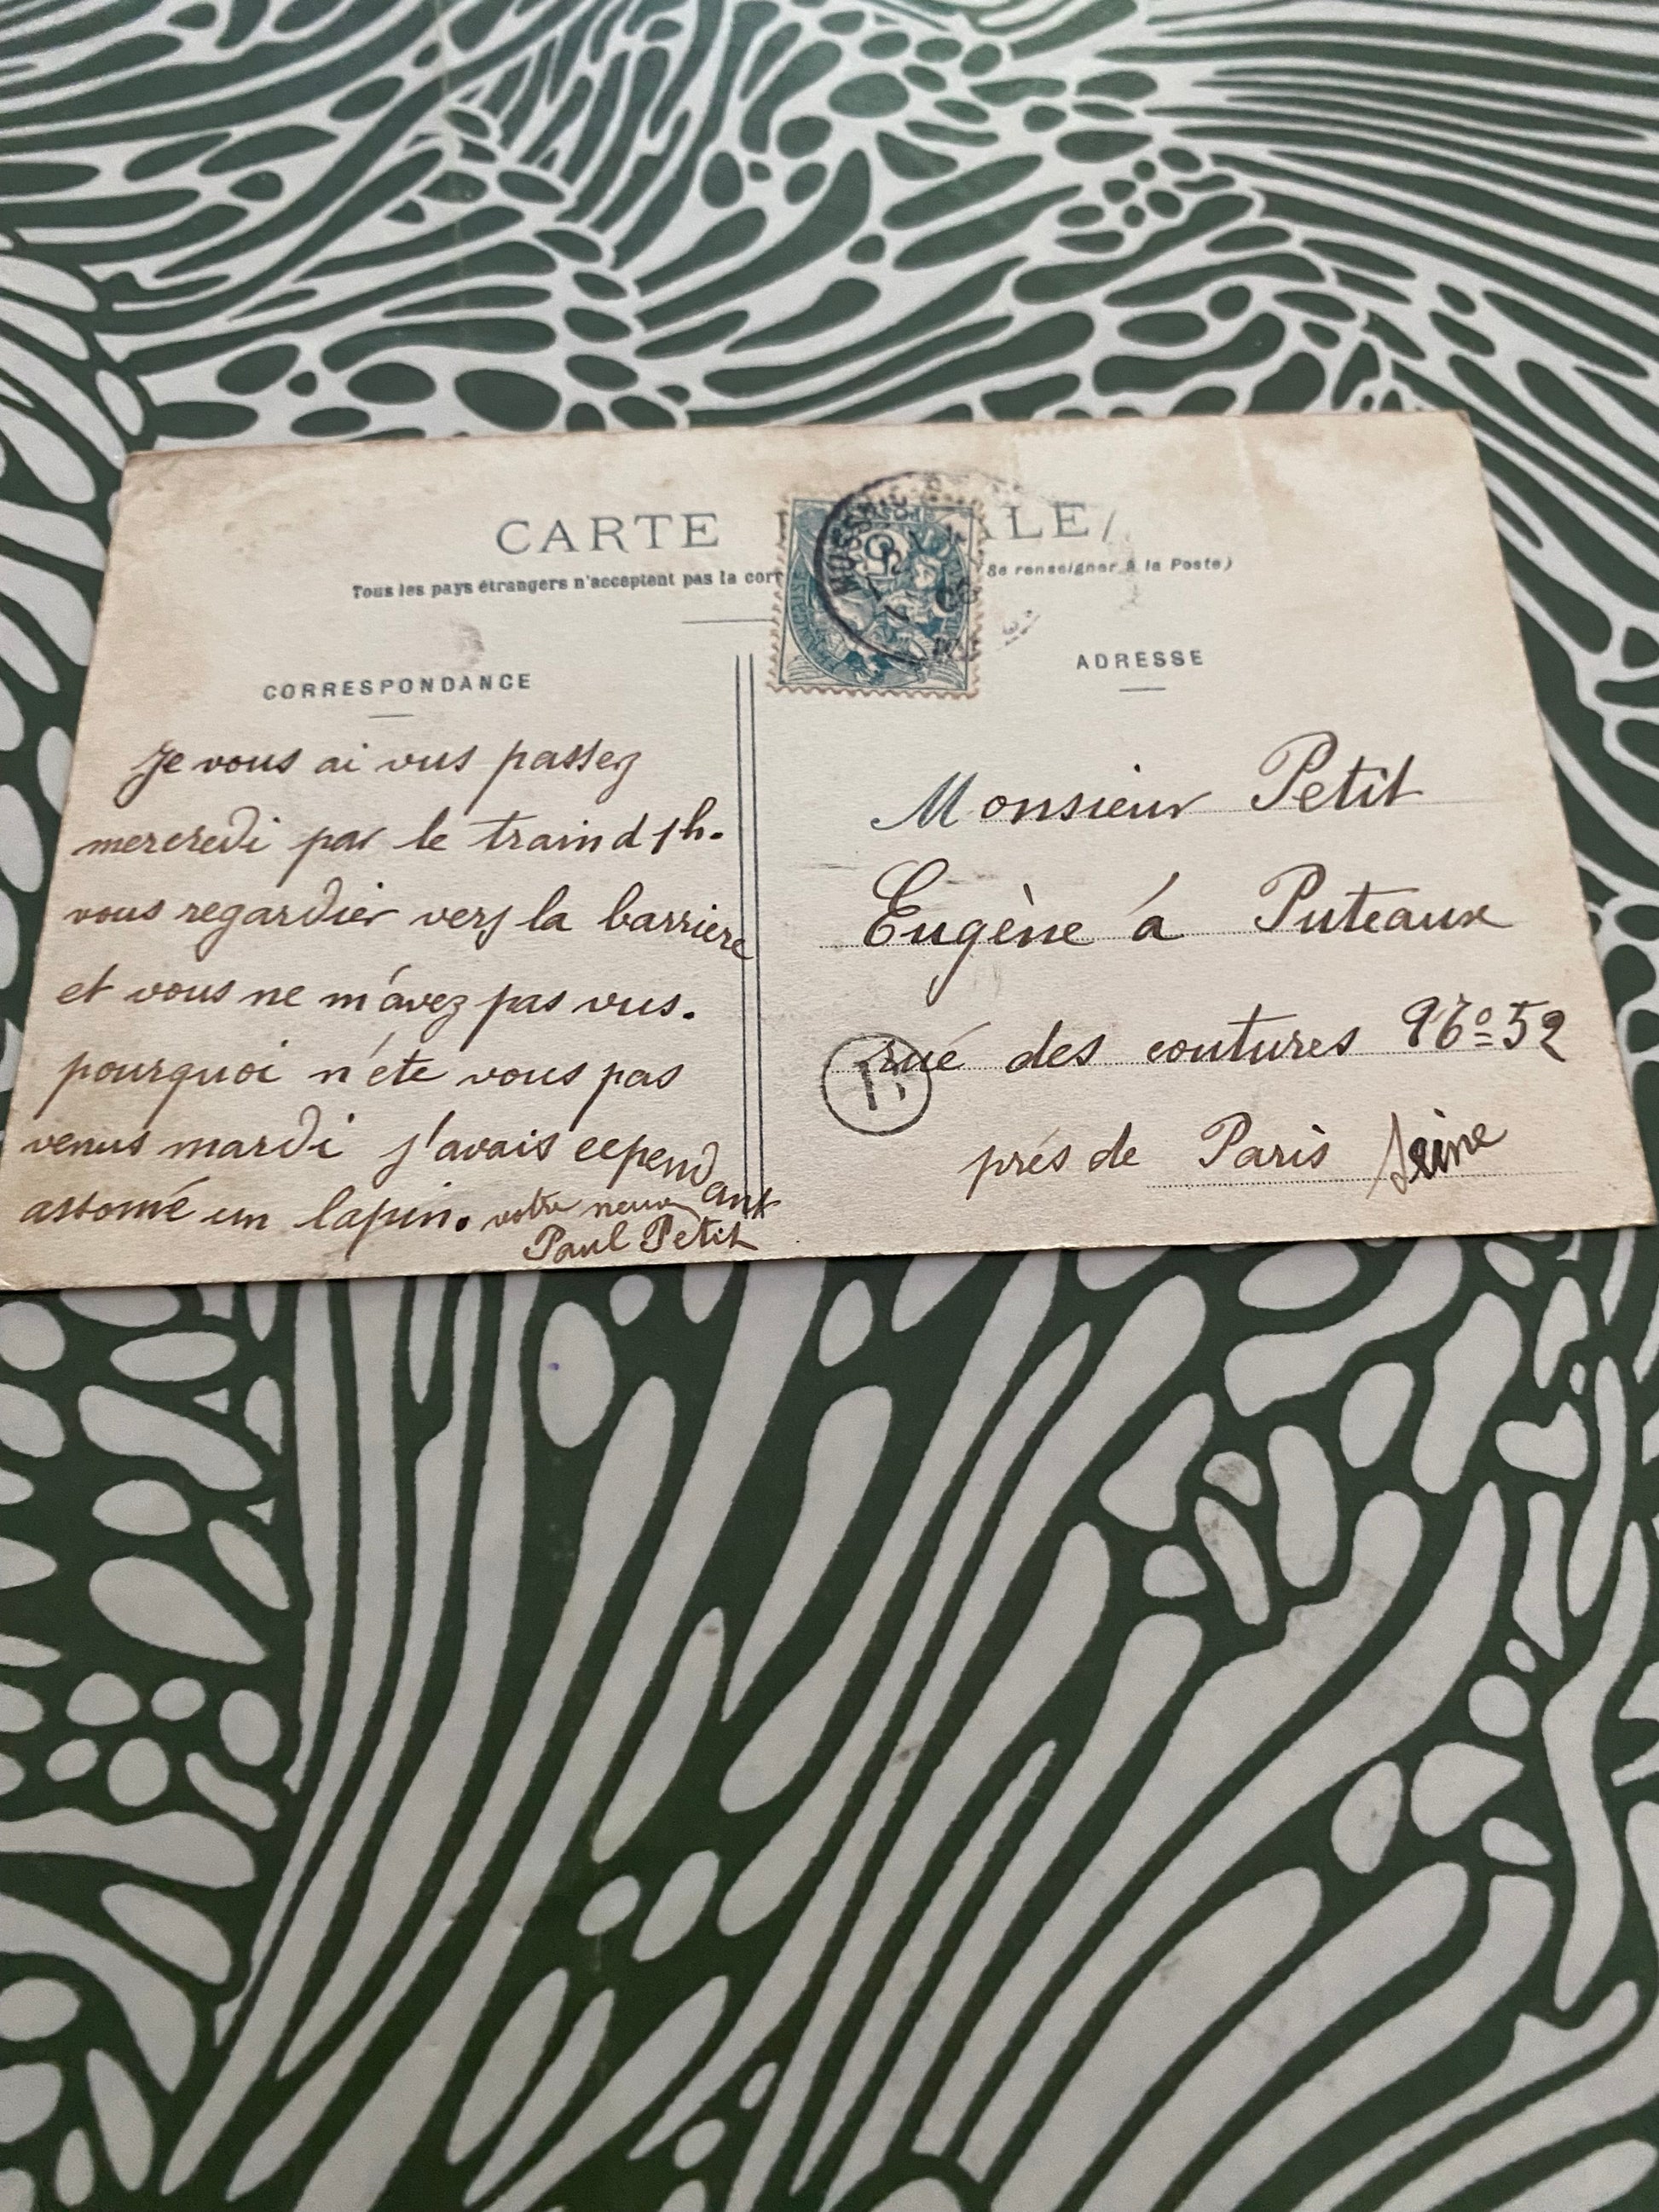 CARTE
LE
Tous les pays étrangers n'acceptent pas la cor
Se renseigner à la Poste)
CORRESPONDANCE
Je vous ai vus passez
mercredi par le train d 1h.
vous regardier vers la barriere
et vous ne m'avez pas vus.
pourquoi n'éte vous pas
venus mardi j'avais cependant
assomé un lapin. votre neveu
Paul Petit
5
ADRESSE
Monsieur Petit
Eugène à Puteaux
rue des coutures No 52
prés de Paris Seine